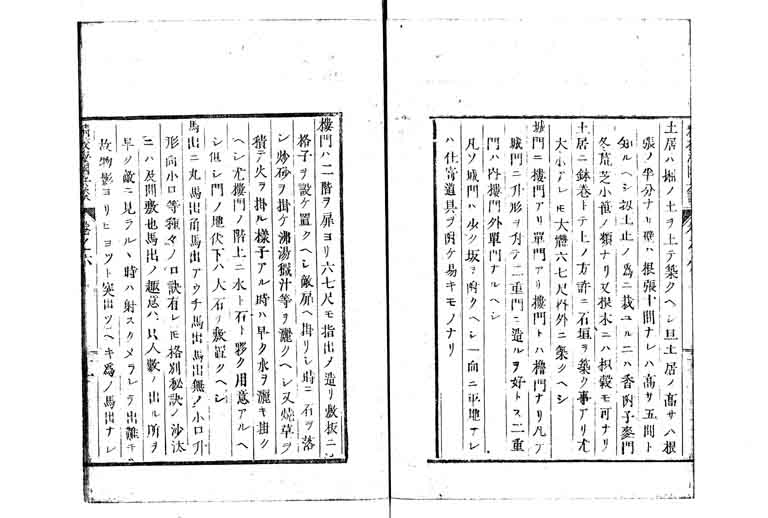 土居ハ堀ノ土ヲ上テ築クヘシ且土居ノ高サハ根
張ノ半分ナリ譬ハ根張十間ナレハ高サ五間ト
知ルヘシ扨土止ノ爲ニ栽ユルニハ香附子麥門
冬荒芝小笹ノ類ナリ又根木ニハ枳穀モ可ナリ
土居ニ鉢巻トテ上ノ方許ニ石垣ヲ築ク事アリ尤
大小アレモ大槩六七尺内外ニ築クヘシ
城門ニ樓門アリ單門アリ樓門トハ櫓門ナリ凡テ
城門ニ升形ヲ升テ二重門ニ造ルヲ好トス二重
門ハ内樓門外單門ナルヘシ
凡ソ城門ハ少ク坂ヲ附クヘシ一向ニ平地ナレ
ハ仕寄道具ヲ附ケ易キモノナリ
樓門ハ二階ヲ扉ヨリ六七尺モ指出ノ造リ敷板ニ
格子ヲ設ケ置クヘシ敵扉ヘ掛リシ時ニ石ヲ落
シ炒砂ヲ掛ケ沸湯獄汁等ヲ灑クヘシ又焼草ヲ
積テ火ヲ掛ル樣子アル時ハ早ク水ヲ灑キ掛ク
ヘシ尤樓門ノ階上ニ水ト石ト夥ク用意アルヘ
シ但シ門ノ地伏下ハ大石ヲ敷置クヘシ
馬出ニ丸馬出角馬出アウチ馬出馬出無ノ小口升
形向小口等種々ノ口訣有レモ格別秘訣ノ沙汰
ニハ及間敷也馬出ノ趣意ハ只人數ノ出ル所ヲ
早ク敵ニ見ラルヽ時ハ射スクメラレテ出難キ
故物影ヨリヒヨツト突出ツヘキ爲ノ馬出ナレ
卷之六